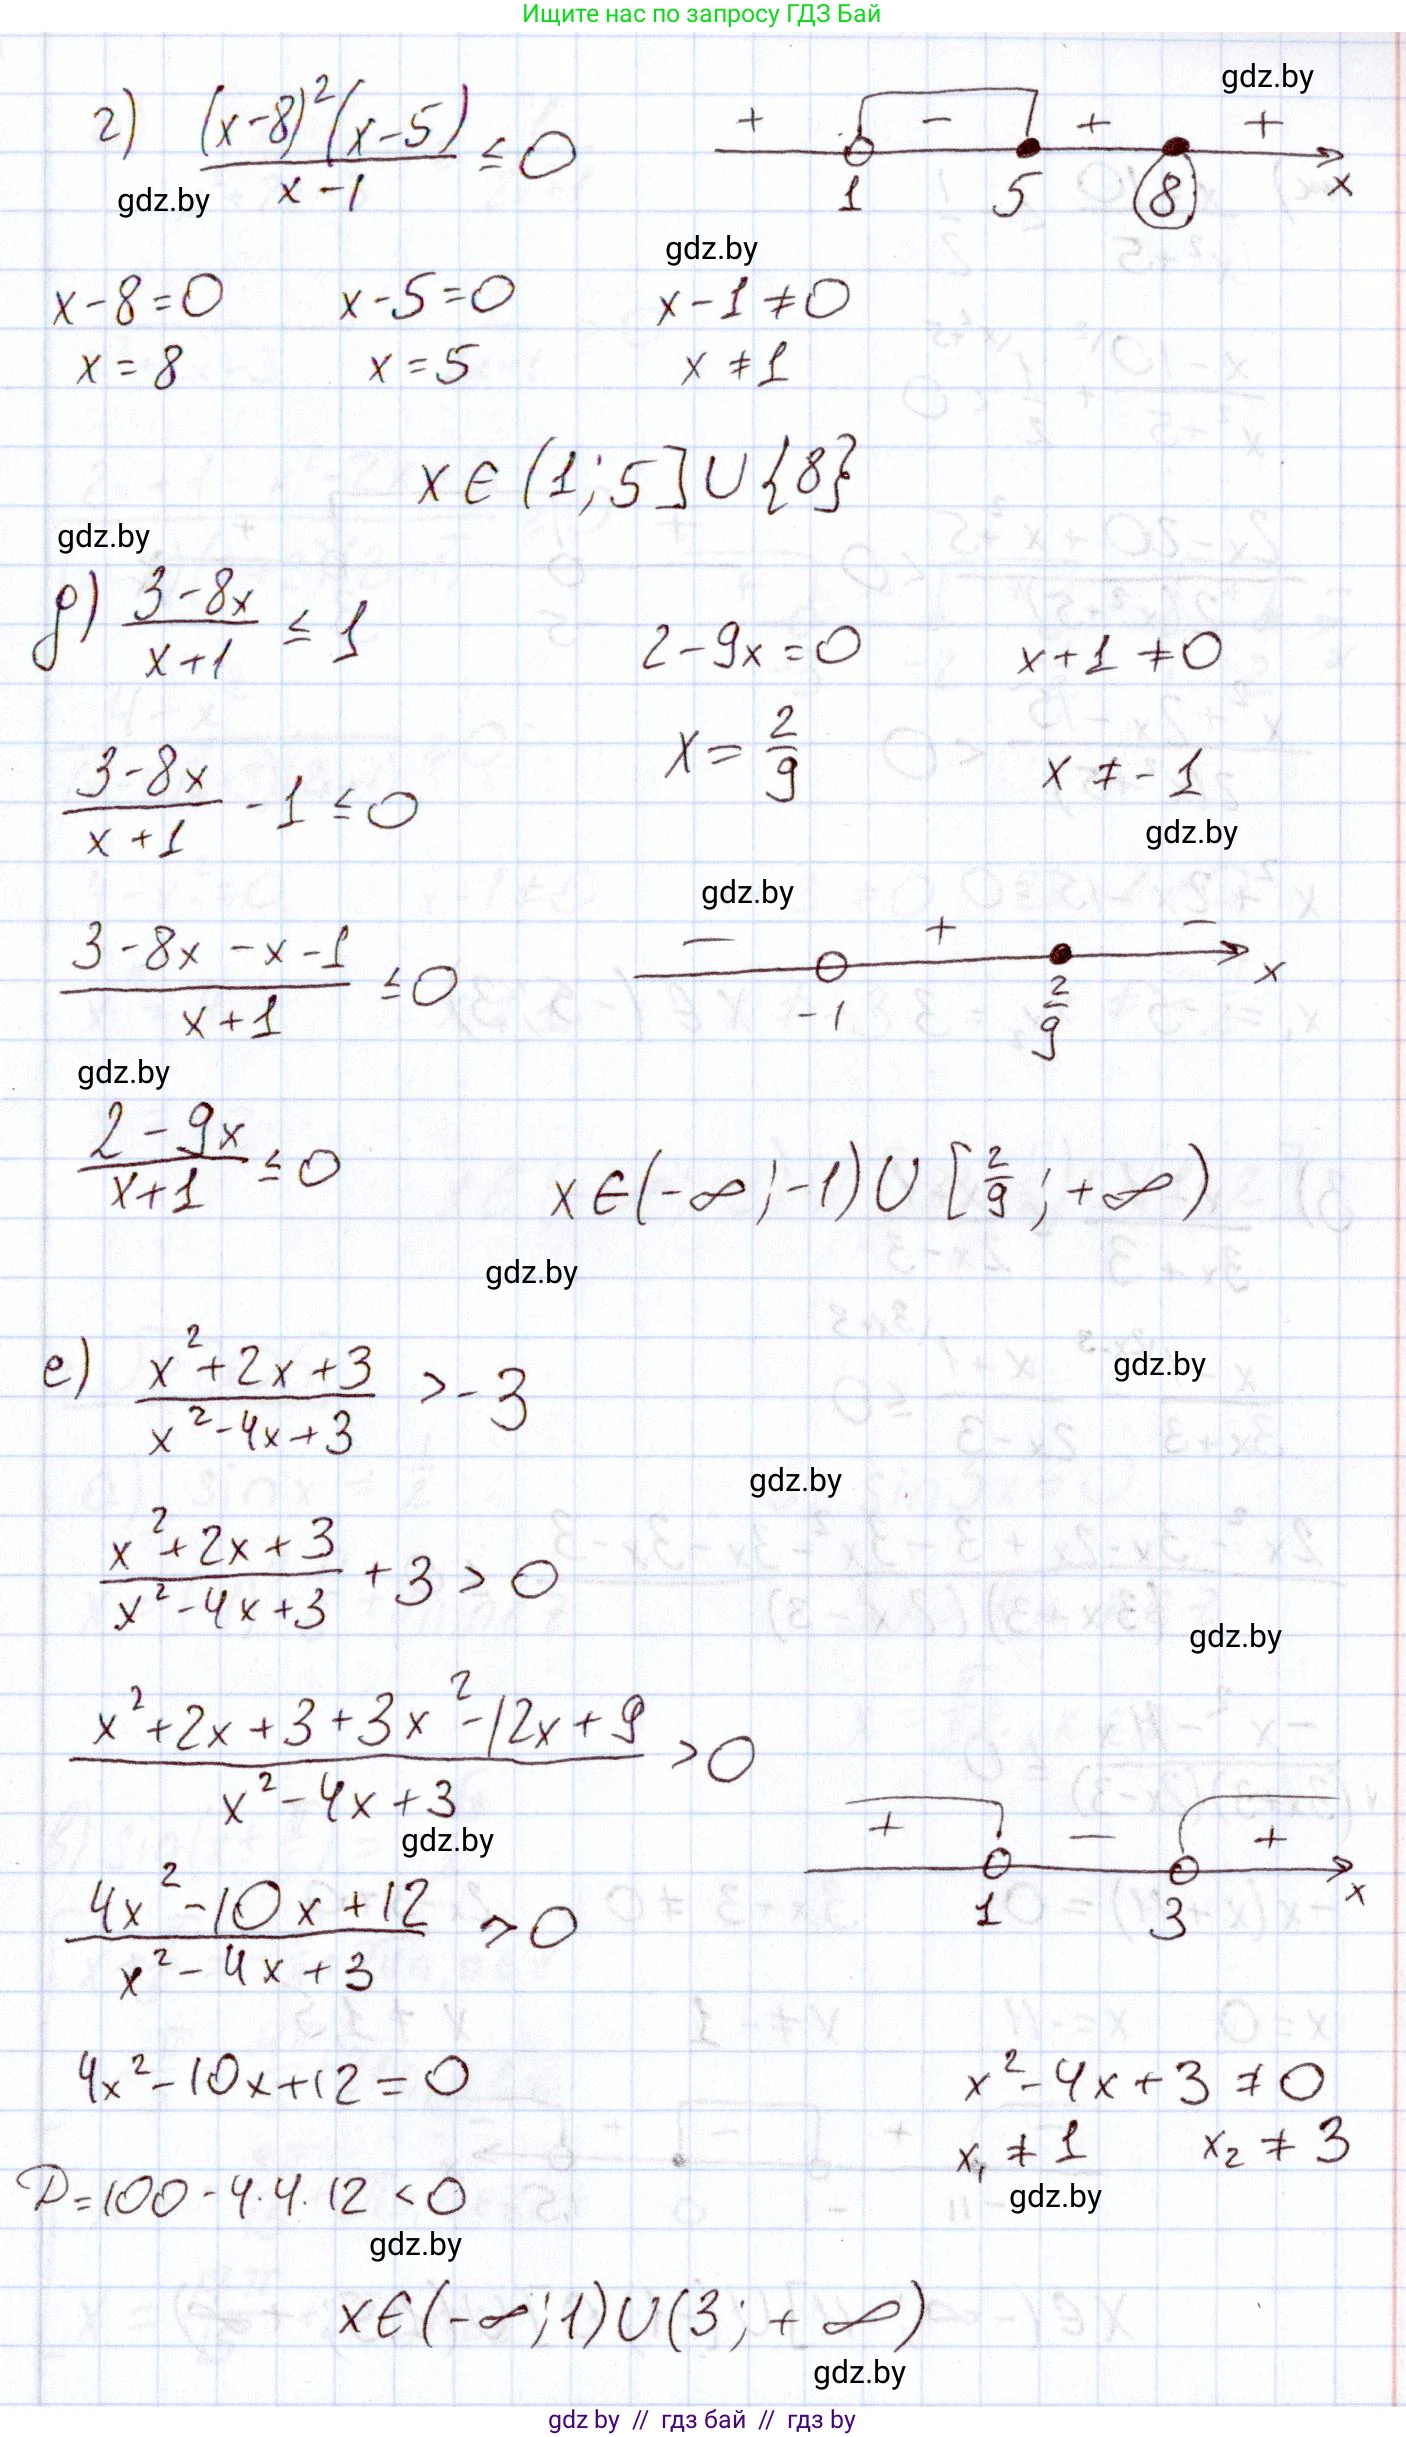 Ищите нас по запросу ГДЗ Бай
gdz.by
г) (x-8)²(x-5) / x-1 ≤ 0
+ - + +
1 5 8 x
gdz.by
gdz.by
x-8=0 x-5=0 x-1≠0
x=8 x=5 x≠1
x∈(1;5]∪{8}
gdz.by
д) 3-8x / x+1 ≤ 1
2-9x=0 x+1≠0
x=2/9 x≠-1
3-8x / x+1 - 1 ≤ 0
gdz.by
gdz.by
3-8x-x-1 / x+1 ≤ 0
- + -
-1 2/9 x
gdz.by
2-9x / x+1 ≤ 0
x∈(-∞;-1)∪[2/9;+∞)
gdz.by
е) x²+2x+3 / x²-4x+3 > -3
gdz.by
gdz.by
x²+2x+3 / x²-4x+3 + 3 > 0
gdz.by
x²+2x+3+3x²-12x+9 / x²-4x+3 > 0
gdz.by
+ - +
1 3 x
4x²-10x+12 / x²-4x+3 > 0
4x²-10x+12=0 x²-4x+3≠0
x₁≠1 x₂≠3
D=100-4·4·12<0
gdz.by
gdz.by
x∈(-∞;1)∪(3;+∞)
gdz.by
gdz by // гдз бай // гдз by